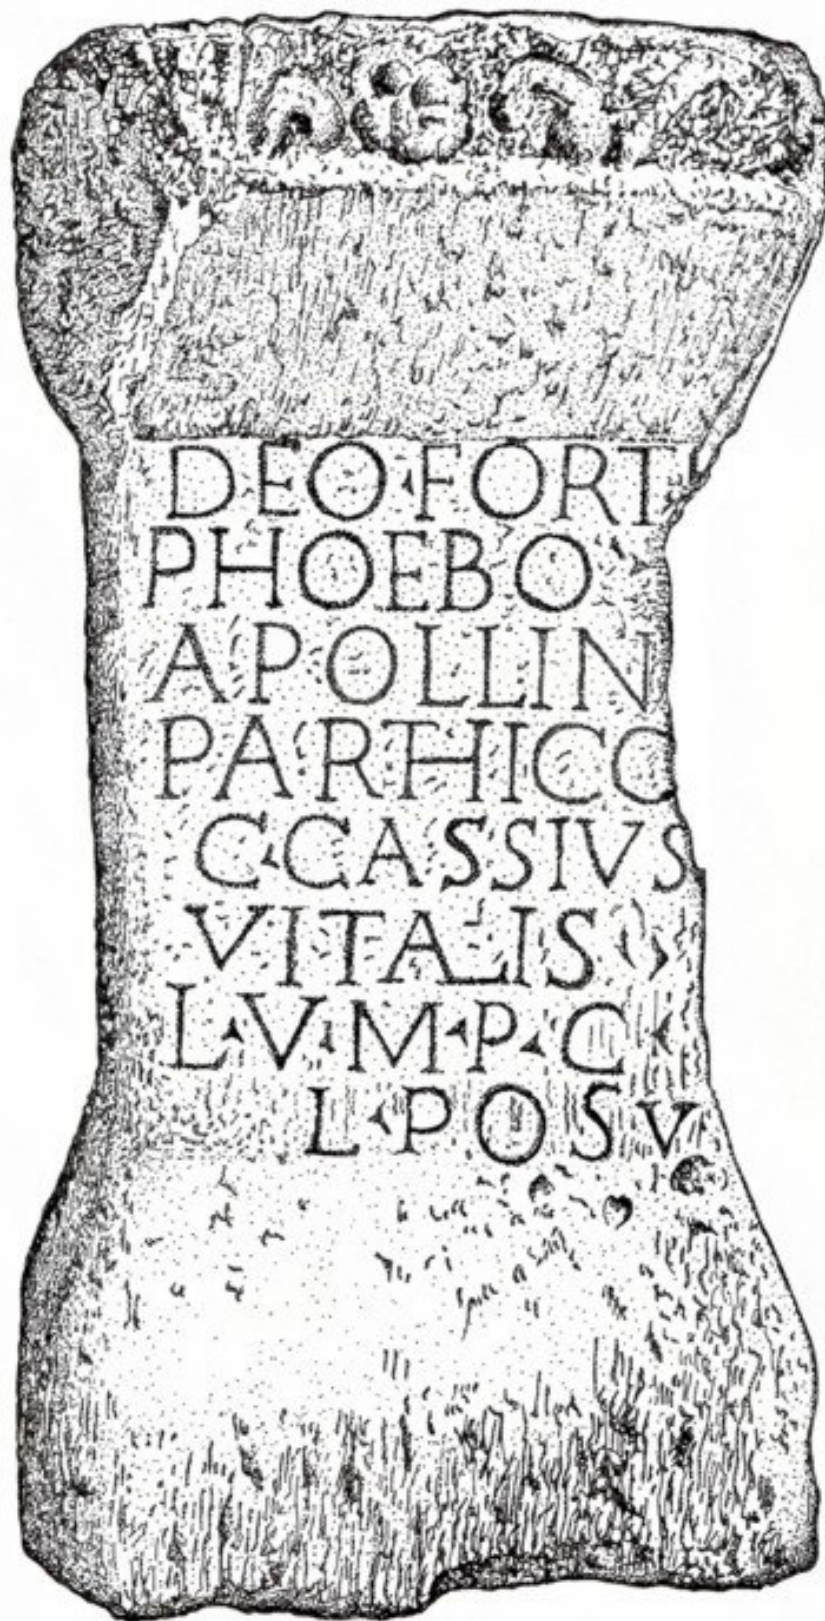 DEO·FORT
PHOEBO
APOLLIN
PARTHICO
C·CASSIVS
VITALIS
L·V·M·P·C
L·POSV